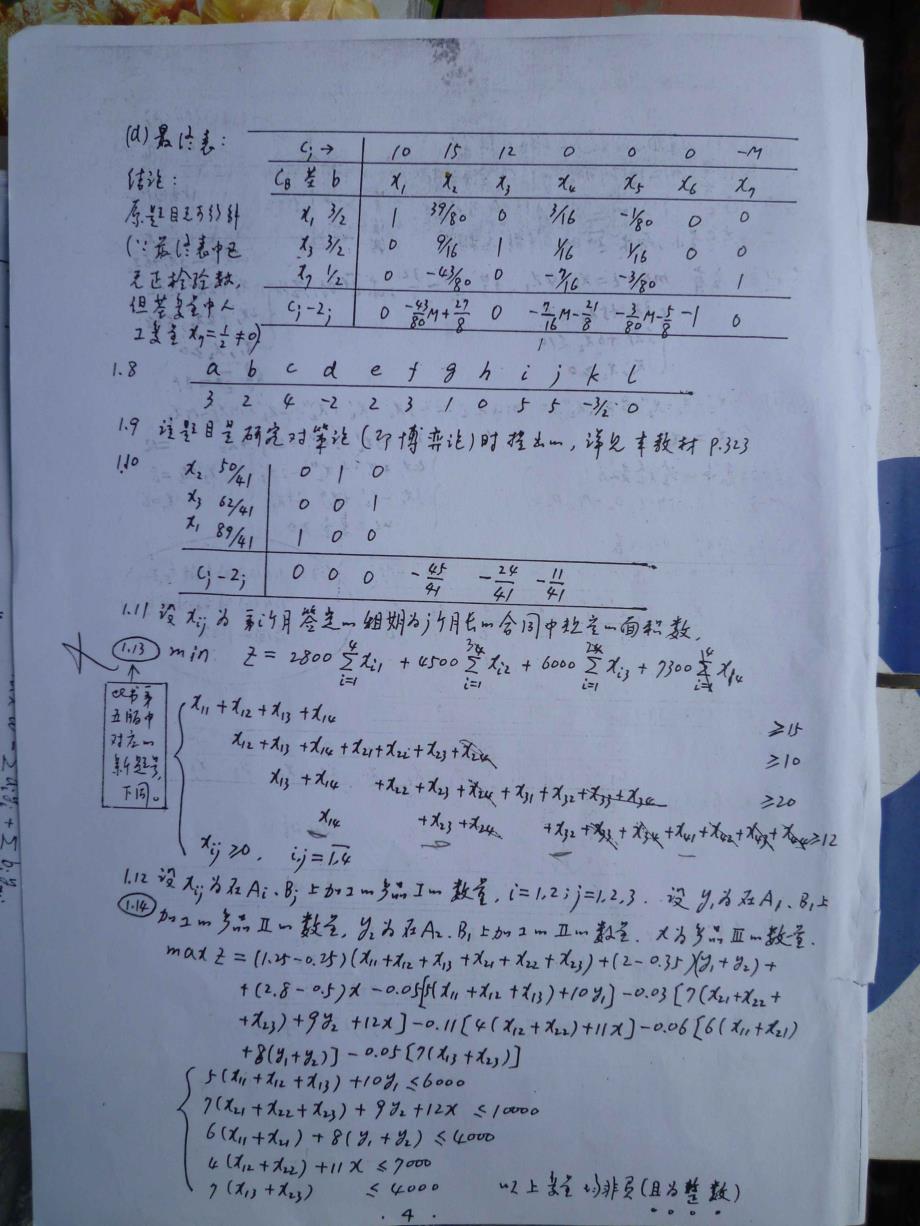 (d) 最终表:
cj → 10 15 12 0 0 0 -M
CB 基 b x1 x2 x3 x4 x5 x6 x7
x1 3/2 1 39/80 0 3/16 -1/80 0 0
x3 3/2 0 9/16 1 1/16 1/16 0 0
x7 1/2 0 -43/80 0 -7/16 -3/80 1
cj-zj 0 -43/80M+27/8 0 -7/16M-21/8 -3/80M-5/8 -1 0
结论:
原题目无可行解
(∵最终表中已
无正检验数,
但基变量中人
工变量 x7=1/2≠0)
1.8 a b c d e f g h i j k l
3 2 4 -2 2 3 1 0 5 5 -3/2 0
1.9 该题目是研究对策论(即博弈论)时提出的, 详见本教材 P.323
1.10 x2 50/41 0 1 0
x3 62/41 0 0 1
x1 89/41 1 0 0
cj-zj 0 0 0 -45/41 -24/41 -11/41
1.11 设 xij 为第i个月签定的租期为j个月长的合同中规定的面积数,
(1.13) min z = 2800 Σ xi1 + 4500 Σ xi2 + 6000 Σ xi3 + 7300 Σ
此书第
五版中
对应的
新题号,
下同。
x11+x12+x13+x14 ≥15
x12+x13+x14+x21+x22+x23+x24 ≥10
x13+x14 +x22+x23+x24+x31+x32+x33+x34 ≥20
x14 +x23+x24 +x32+x33+x34+x41+x42+x43+x44≥12
xij≥0, i,j=1,4
1.12 设 xij 为在 Ai、Bj 上加工的产品Ⅰ的数量, i=1,2; j=1,2,3. 设 y1 为在 A1、B1上
(1.14) 加工的产品Ⅱ的数量, y2 为在 A2、B1上加工的Ⅱ的数量. x为产品Ⅲ的数量.
max z = (1.25-0.25)(x11+x12+x13+x21+x22+x23)+(2-0.35)(y1+y2)+
+(2.8-0.5)x-0.05[5(x11+x12+x13)+10y1]-0.03[7(x21+x22+
+x23)+9y2+12x]-0.11[4(x12+x22)+11x]-0.06[6(x11+x21)
+8(y1+y2)]-0.05[7(x13+x23)]
5(x11+x12+x13)+10y1≤6000
7(x21+x22+x23)+9y2+12x≤10000
6(x11+x21)+8(y1+y2)≤4000
4(x12+x22)+11x≤7000
7(x13+x23) ≤4000 以上变量均非负(且为整数)
. 4 .